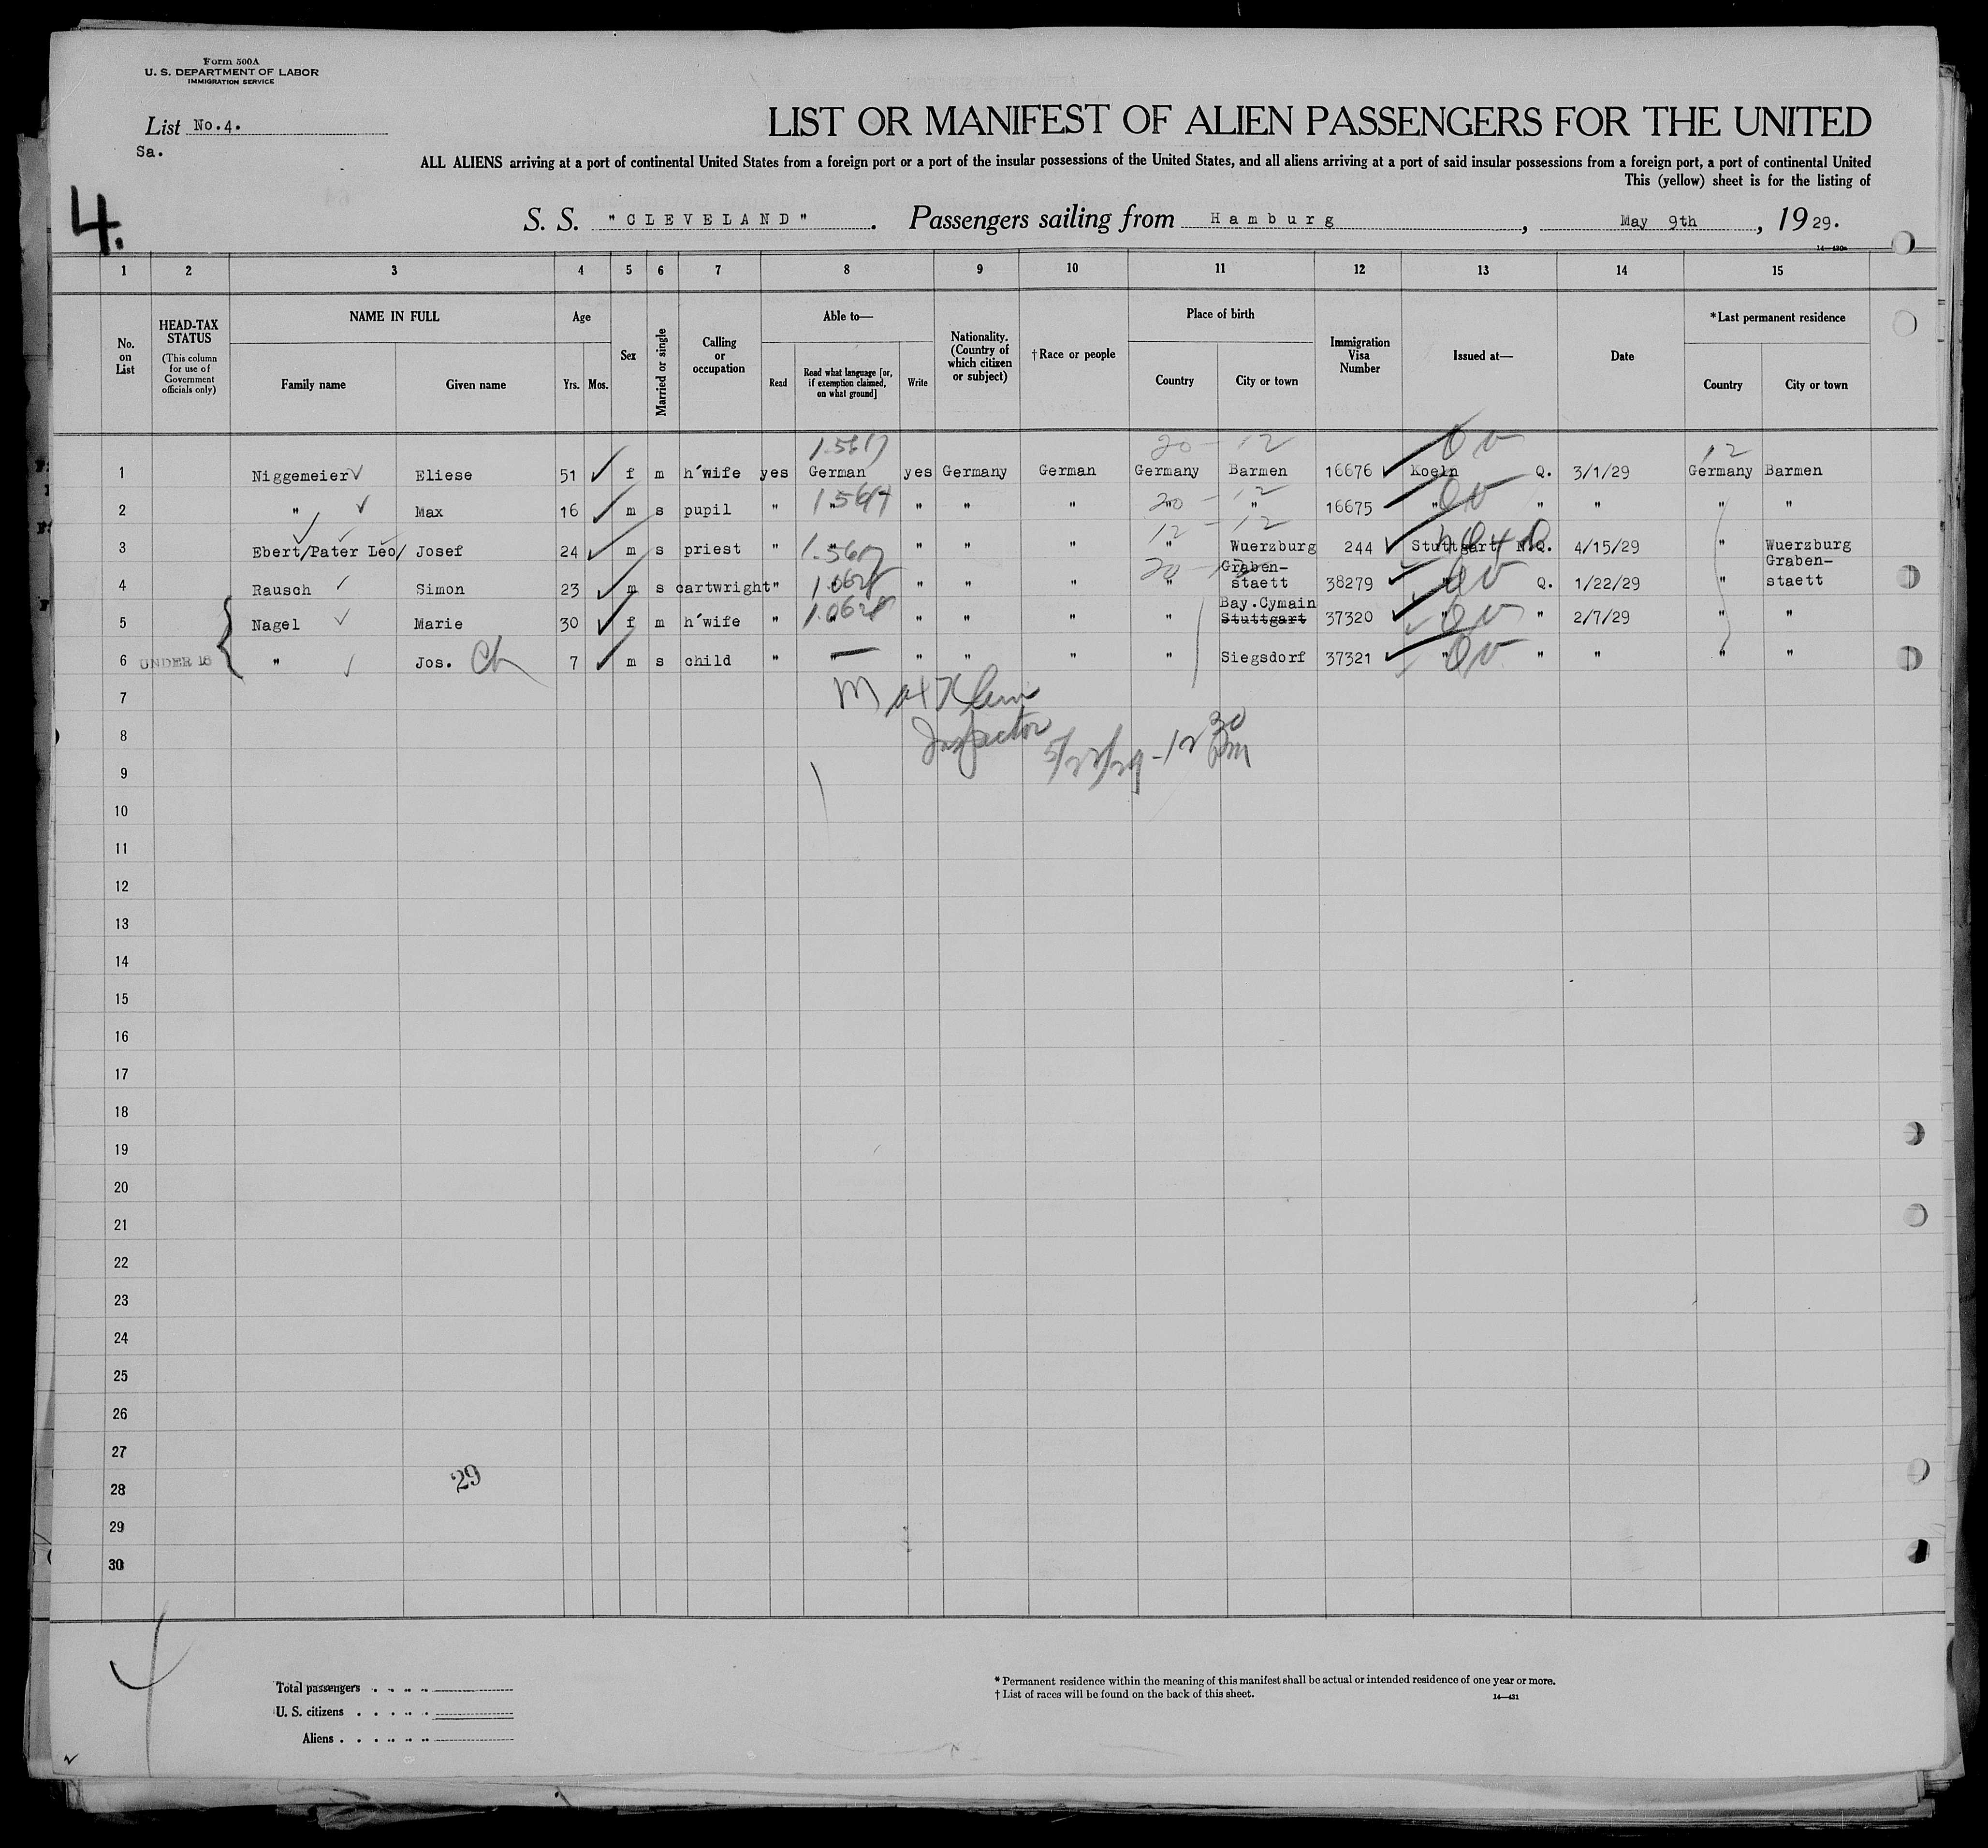 Form 500A
U. S. DEPARTMENT OF LABOR
IMMIGRATION SERVICE
List No.4.
Sa.
4.
LIST OR MANIFEST OF ALIEN PASSENGERS FOR THE UNITED
ALL ALIENS arriving at a port of continental United States from a foreign port or a port of the insular possessions of the United States, and all aliens arriving at a port of said insular possessions from a foreign port, a port of continental United
This (yellow) sheet is for the listing of
S. S. "CLEVELAND". Passengers sailing from Hamburg, May 9th, 1929.
14—430a
1 2 3 4 5 6 7 8 9 10 11 12 13 14 15
No. on List
HEAD-TAX STATUS
(This column for use of Government officials only)
NAME IN FULL
Family name Given name
Age
Yrs. Mos.
Sex
Married or single
Calling or occupation
Able to—
Read
Read what language [or, if exemption claimed, on what ground]
Write
Nationality. (Country of which citizen or subject)
† Race or people
Place of birth
Country City or town
Immigration Visa Number
Issued at—
Date
*Last permanent residence
Country City or town
20 - 12 12
1 Niggemeier Eliese 51 f m h'wife yes German yes Germany German Germany Barmen 16676 Koeln Q. 3/1/29 Germany Barmen
20 - 12
2 " Max 16 m s pupil " " " " " " " 16675 " " " " "
12 - 12
3 Ebert/Pater Leo/ Josef 24 m s priest " " " " " " Wuerzburg 244 Stuttgart N.Q. 4/15/29 " Wuerzburg
4 Rausch Simon 23 m s cartwright " " " " " " Graben-staett 38279 " Q. 1/22/29 " Graben-staett
5 Nagel Marie 30 f m h'wife " " " " " " Bay.Cymain Stuttgart 37320 " " 2/7/29 " "
6 UNDER 16 " Jos. Ch 7 m s child " " " " " " Siegsdorf 37321 " " " " "
Inspector
5/22/29 - 12 30 PM
7
8
9
10
11
12
13
14
15
16
17
18
19
20
21
22
23
24
25
26
27
28
29
29
30
Total passengers
U. S. citizens
Aliens
* Permanent residence within the meaning of this manifest shall be actual or intended residence of one year or more.
† List of races will be found on the back of this sheet.
14—431